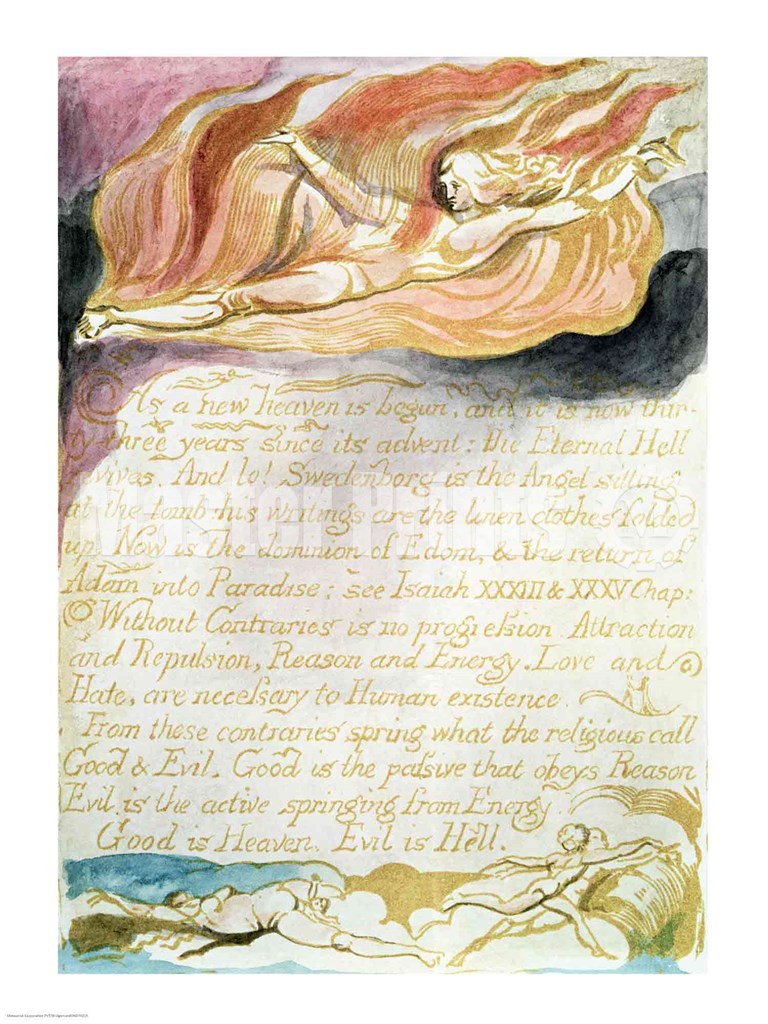 As a new heaven is begun, and it is now thir-
ty-three years since its advent: the Eternal Hell
revives. And lo! Swedenborg is the Angel sitting
at the tomb: his writings are the linen clothes folded
up. Now is the dominion of Edom, & the return of
Adam into Paradise; see Isaiah XXXIII & XXXV Chap:
Without Contraries is no progreſsion. Attraction
and Repulsion, Reason and Energy, Love and
Hate, are neceſsary to Human existence.
From these contraries spring what the religious call
Good & Evil. Good is the paſsive that obeys Reason
Evil is the active springing from Energy.
Good is Heaven. Evil is Hell.
Master Prints